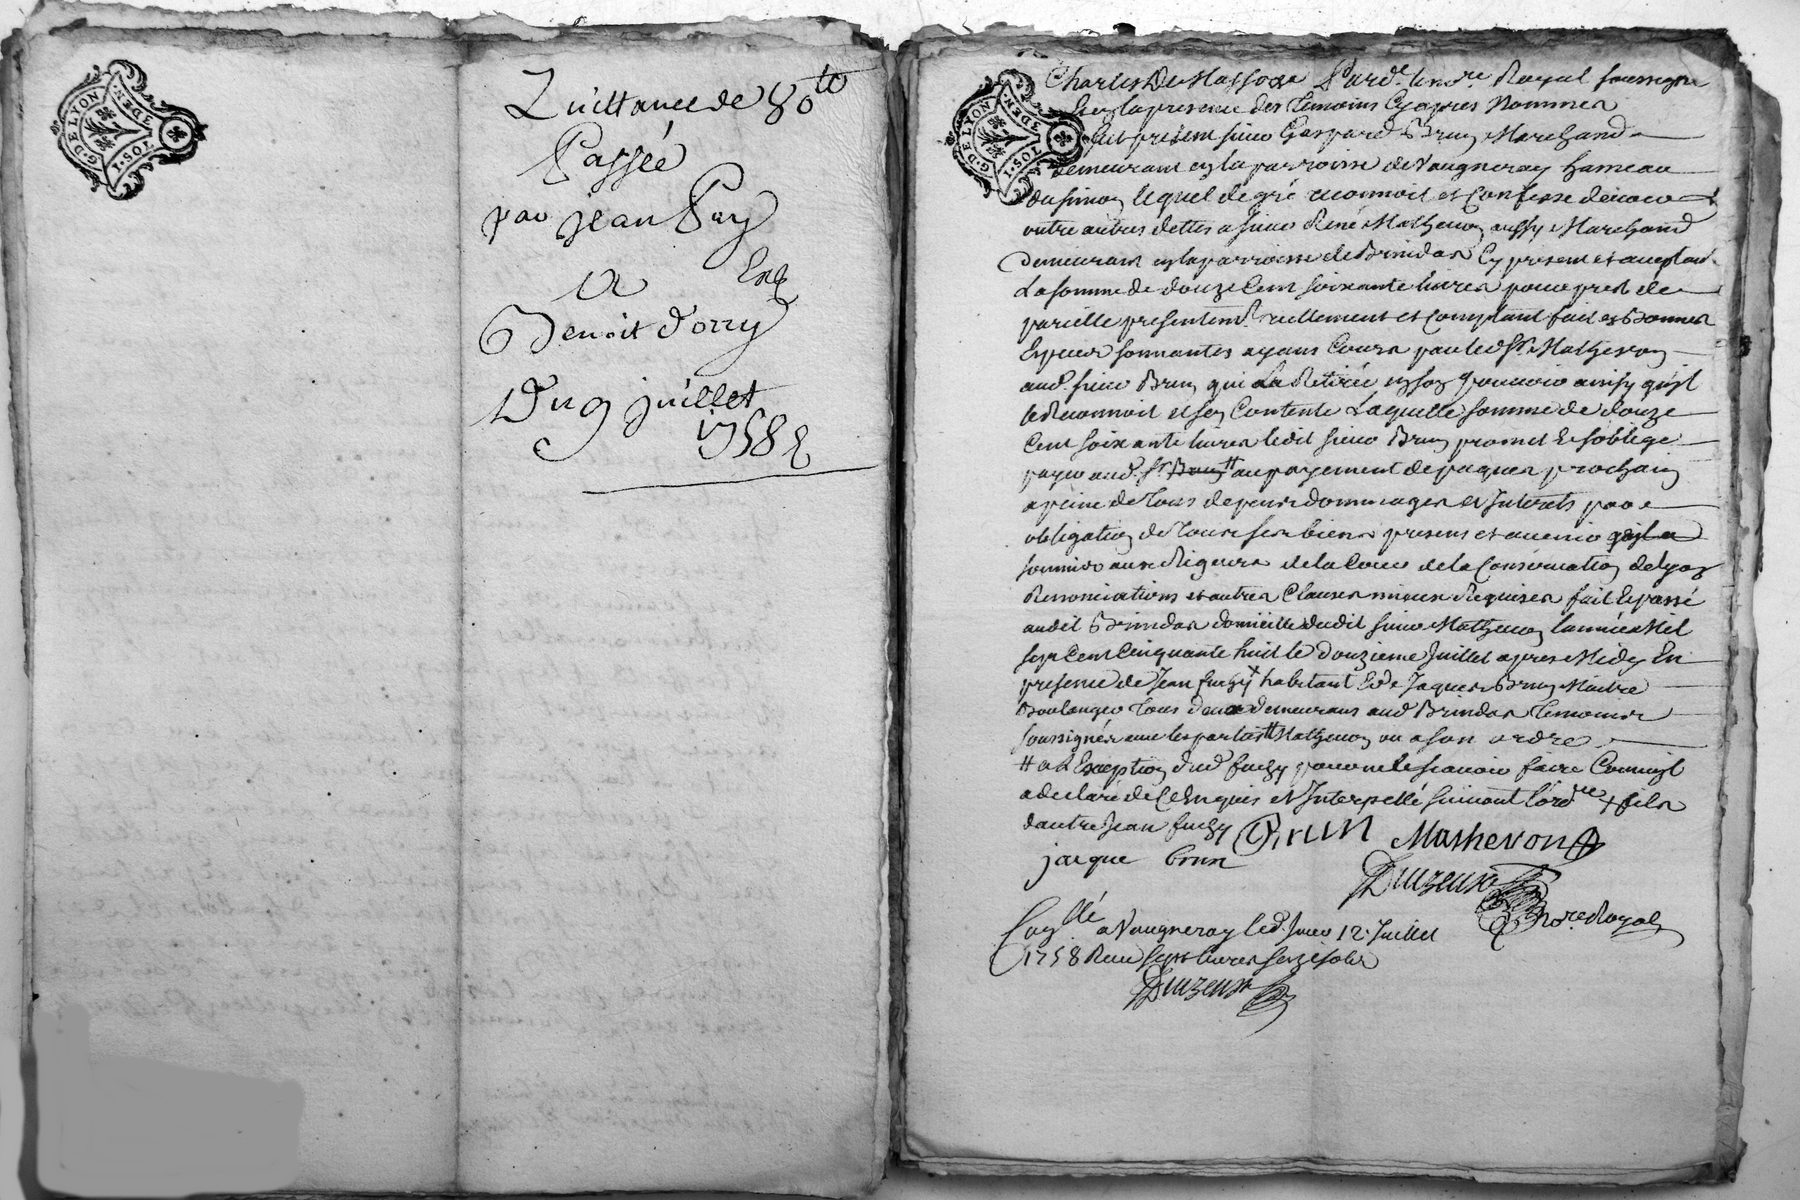 G. DE LYON
1. SOL. 3 DEN.
Quittance de 80tt
Passée
par jean Puy
a
Benoit Dorry
Du 9 juillet
1758
G. DE LYON
1. SOL. 3 DEN.
no.re Royal soussigné
la presence des temoins Cyapres Nommés
fut présent sieur Gaspard Brun Marchand
demeurant en la parroisse de Vaugneray hameau
lequel de gré reconnoit et Confesse devoir
outre autres dettes a sieur René Mathevon aussy Marchand
demeurant en la parroisse de Brindas Cy present et acceptant
La somme de douze Cent soixante livres pour prest de
pareille presentemt. reellement et Comptant fait en Bonnes
Especes sonnantes ayant Cours par led. Sr. Mathevon
aud. sieur Brun qui La Retirée en son pouvoir ainsy qu'il
le Reconnoit et sen Contente Laquelle somme de douze
Cent soixante livres ledit sieur Brun promet Et soblige
payer aud. Sr. Brun tt au payement de paques prochain
a peine de tous depens dommages et Interets par
obligation de tous ses biens presens et avenir quil a
soumis aux Rigueurs de la Cour de la Conservation de lyon
Renonciations et autres Clauses mieux Requises fait Et passé
audit Brindas domicille dudit sieur Mathevon lannée Mil
sept Cent Cinquante huit le douzieme Juillet apres Midy En
presence de Jean habitant Et de Jaques Brun Maitre
Boulanger tous deux demeurans aud. Brindas temoins
soussignés avec les parties tt Mathevon ou a son ordre
tt a L'Exception dud. pour ne le scavoir faire Comme il
a declaré de Ce Enquis et Interpellé suivant l'ord.nce + fils
d'autre Jean Brun Mathevon
jacque brun
no.re Royal
Con.llé a Vaugneray led. Jour 12. Juillet
1758 Reçu sept livres seize sols